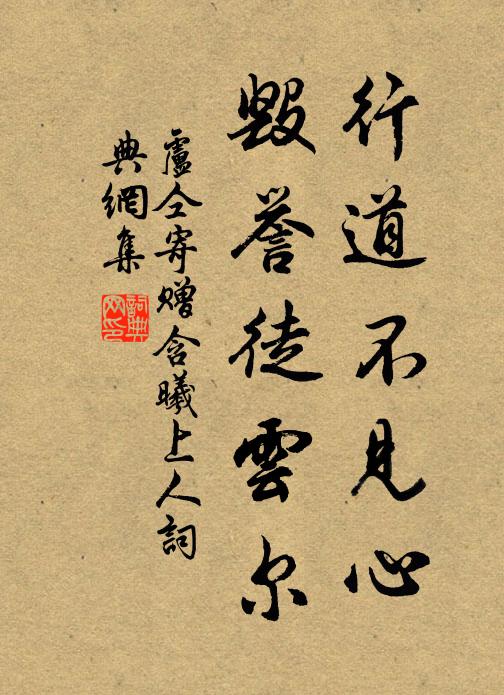 行道不見心
毀譽徒雲尔
盧仝寄贈含曦上人詞
典網集
詞典
网印